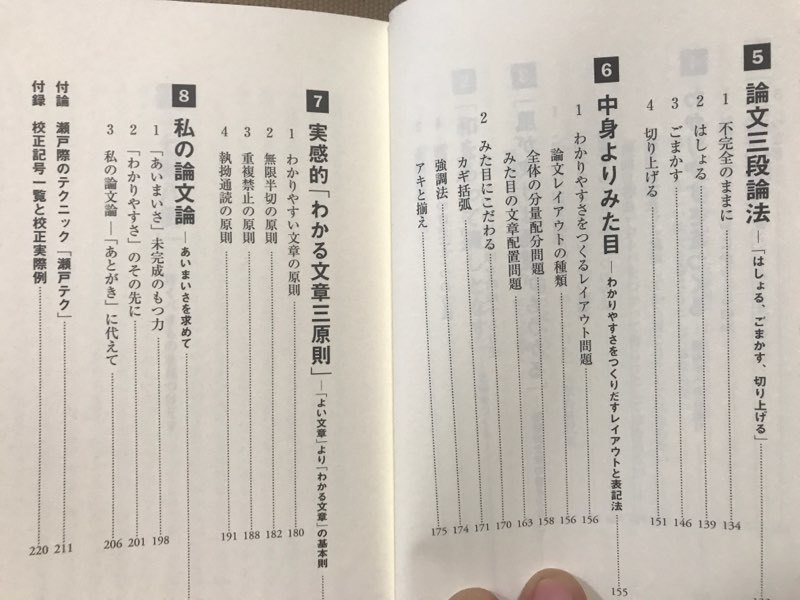 5 論文三段論法―「はしょる、ごまかす、切り上げる」
1 不完全のままに 134
2 はしょる 139
3 ごまかす 146
4 切り上げる 151
6 中身よりみた目―わかりやすさをつくりだすレイアウトと表記法 155
1 わかりやすさをつくるレイアウト問題 156
論文レイアウトの種類 156
全体の分量配分問題 158
みた目の文章配置問題 163
2 みた目にこだわる 170
カギ括弧 171
強調法 174
アキと揃え 175
7 実感的「わかる文章三原則」―「よい文章」より「わかる文章」の基本則
1 わかりやすい文章の原則 180
2 無限半切の原則 182
3 重複禁止の原則 188
4 執拗通読の原則 191
8 私の論文論―あいまいさを求めて
1 「あいまいさ」未完成のもつ力 198
2 「わかりやすさ」のその先に 201
3 私の論文論―「あとがき」に代えて 206
付論 瀬戸際のテクニック「瀬戸テク」 211
付録 校正記号一覧と校正実際例 220